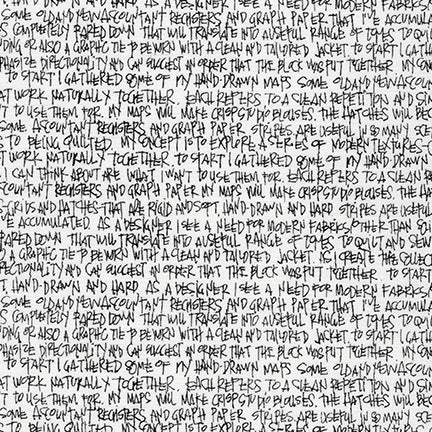 HAND-DRAWN AND HARD AS A DESIGNER I SEE A NEED FOR MODERN FABRICS
SOME OLD AND NEW ACCOUNTANT REGISTERS AND GRAPH PAPER THAT I'VE ACCUMULA
S COMPLETELY PARED DOWN THAT WILL TRANSLATE INTO A USEFUL RANGE OF TONES TO QUI
DING OR ALSO A GRAPHIC TIE TO BE WORN WITH A CLEAN AND TAILORED JACKET. TO START I GATHE
PHASIZE DIRECTIONALITY AND CAN SUGGEST AN ORDER THAT THE BLOCK WAS PUT TOGETHER MY CON
TO START I GATHERED SOME OF MY HAND-DRAWN MAPS SOME OLD AND NEW ACCOUN
AT WORK NATURALLY TOGETHER. EACH REFERS TO A CLEAN REPETITION AND SIM
T TO USE THEM FOR. MY MAPS WILL MAKE CRISP STUDIO BLOUSES. THE HATCHES WILL BEC
SOME ACCOUNTANT REGISTERS AND GRAPH PAPER STRIPES ARE USEFUL IN SO MANY SCEN
S TO BEING QUILTED. MY CONCEPT IS TO EXPLORE A SERIES OF MODERN TEXTURES
T WORK NATURALLY TOGETHER TO START I GATHERED SOME OF MY HAND-DRAWN
I CAN THINK ABOUT ARE WHAT I WANT TO USE THEM FOR. EACH REFERS TO A CLEAN RE
COUNTANT REGISTERS AND GRAPH PAPER MY MAPS WILL MAKE CRISP STUDIO BLOUSES. THE HA
GRIDS AND HATCHES THAT ARE RIGID AND SOFT, HAND-DRAWN AND HARD STRIPES ARE USEFUL
'VE ACCUMULATED. AS A DESIGNER I SEE A NEED FOR MODERN FABRICS OTHER THAN SOLI
PARED DOWN THAT WILL TRANSLATE INTO A USEFUL RANGE OF TONES TO QUILT AND SEW
O A GRAPHIC TIE TO BE WORN WITH A CLEAN AND TAILORED JACKET AS I CREATE THE COLLECT
RECTIONALITY AND CAN SUGGEST AN ORDER THAT THE BLOCK WAS PUT TOGETHER TO START
T, HAND-DRAWN AND HARD AS A DESIGNER I SEE A NEED FOR MODERN FABRICS
SOME OLD AND NEW ACCOUNTANT REGISTERS AND GRAPH PAPER THAT I'VE ACCUMUL
S COMPLETELY PARED DOWN THAT WILL TRANSLATE INTO A USEFUL RANGE OF TONES TO QUI
DING OR ALSO A GRAPHIC TIE TO BE WORN WITH A CLEAN AND TAILORED JACKET. TO START I GATHE
PHASIZE DIRECTIONALITY AND CAN SUGGEST AN ORDER THAT THE BLOCK WAS PUT TOGETHER MY CON
TO START I GATHERED SOME OF MY HAND-DRAWN MAPS SOME OLD AND NEW ACCOUN
AT WORK NATURALLY TOGETHER. EACH REFERS TO A CLEAN REPETITION AND SIM
T TO USE THEM FOR. MY MAPS WILL MAKE CRISP STUDIO BLOUSES. THE HATCHES WILL BEC
SOME ACCOUNTANT REGISTERS AND GRAPH PAPER STRIPES ARE USEFUL IN SO MANY SCEN
S TO BEING QUILTED. MY CONCEPT IS TO EXPLORE A SERIES OF MODERN TEXTURES